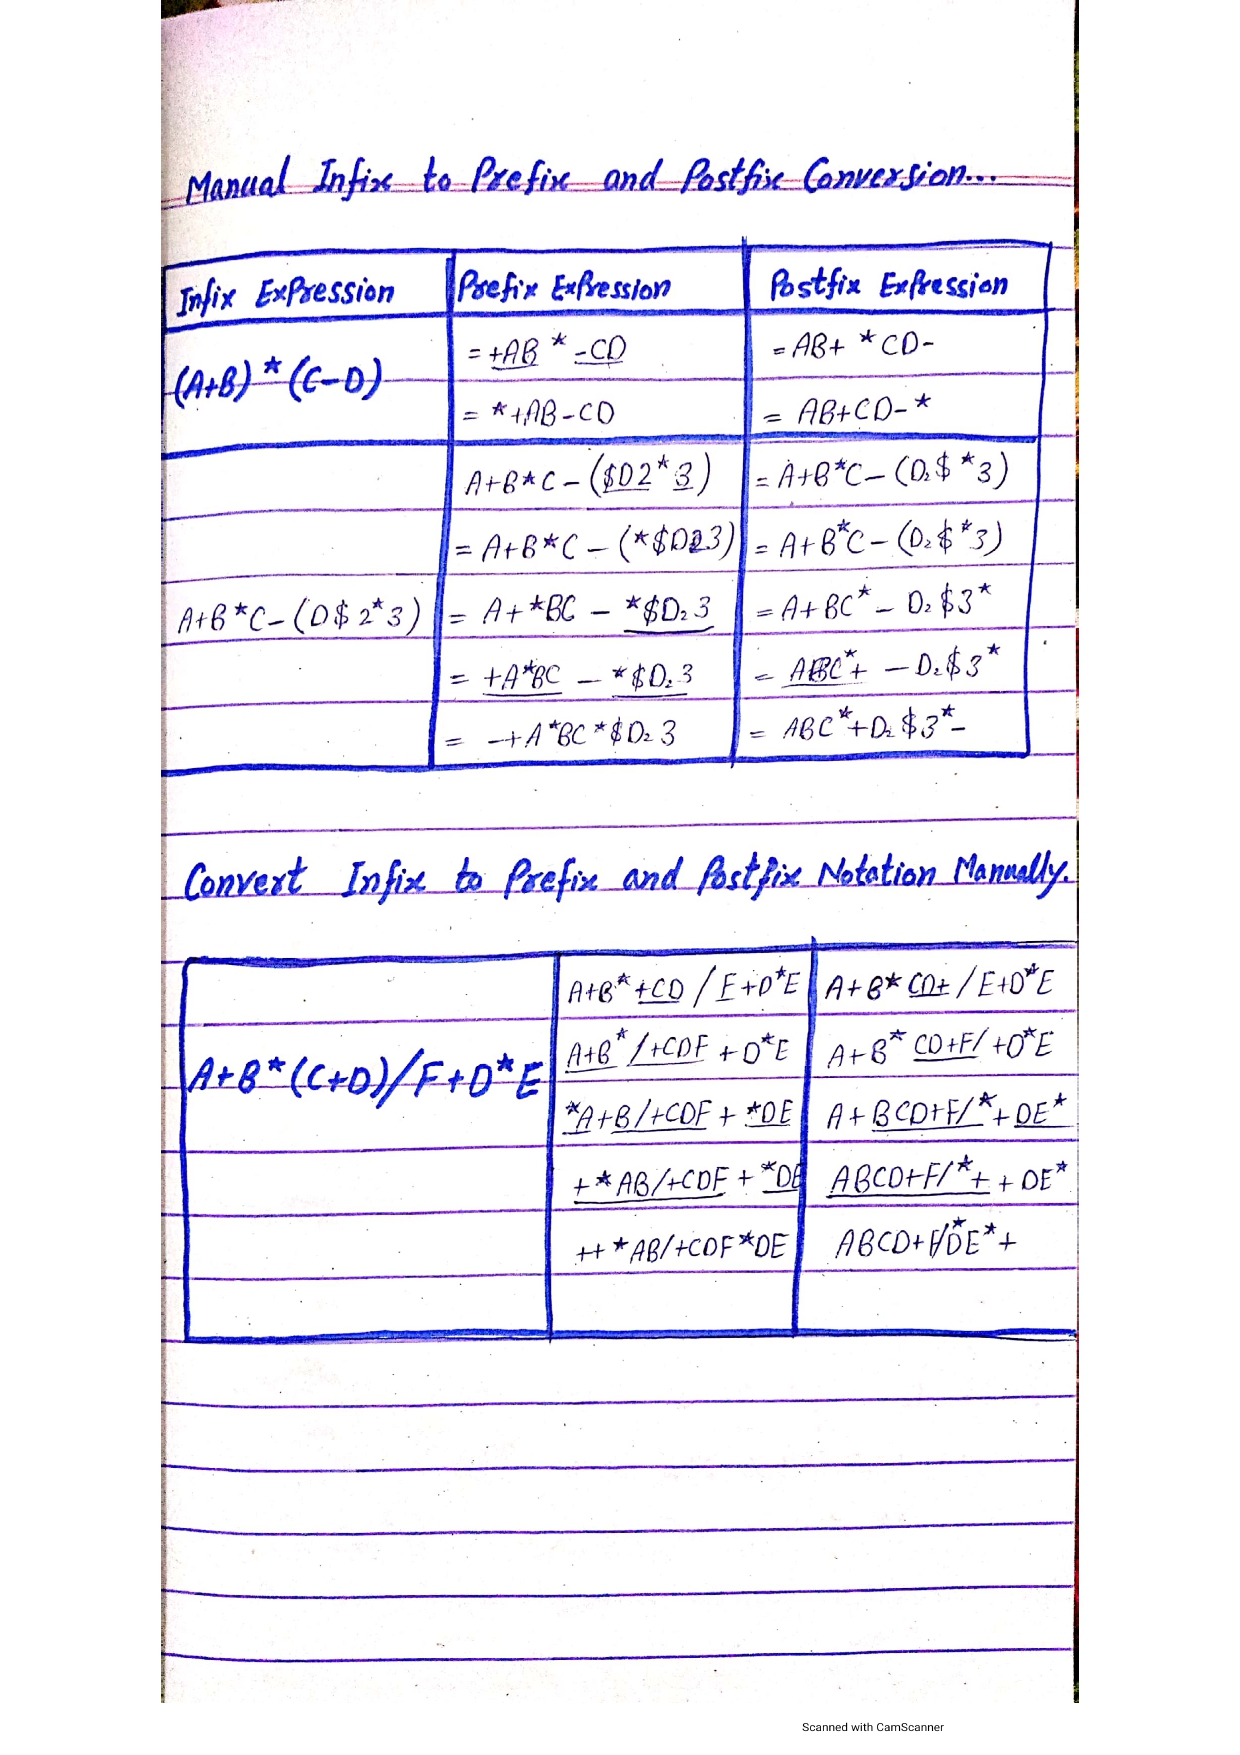 Manual Infix to Prefix and Postfix Conversion...
Infix Expression Prefix Expression Postfix Expression
= +AB * -CD = AB+ * CD-
(A+B) * (C-D)
= *+AB-CD = AB+CD-*
A+B*C-($D2*3) = A+B*C-(D2$*3)
= A+B*C-(*$D23) = A+B*C-(D2$*3)
A+B*C-(D$2*3) = A+*BC - *$D23 = A+BC*- D2$3*
= +A*BC - *$D23 = ABC*+ - D2$3*
= -+A*BC*$D23 = ABC*+D2$3*-
Convert Infix to Prefix and Postfix Notation Manually.
A+B*+CD/E+D*E A+B*CD+/E+D*E
A+B*/+CDF+D*E A+B*CD+F/+D*E
A+B*(C+D)/F+D*E
*A+B/+CDF+*DE A+BCD+F/*+DE*
+*AB/+CDF+*DE ABCD+F/*++DE*
++*AB/+CDF*DE ABCD+F/*DE*+
Scanned with CamScanner